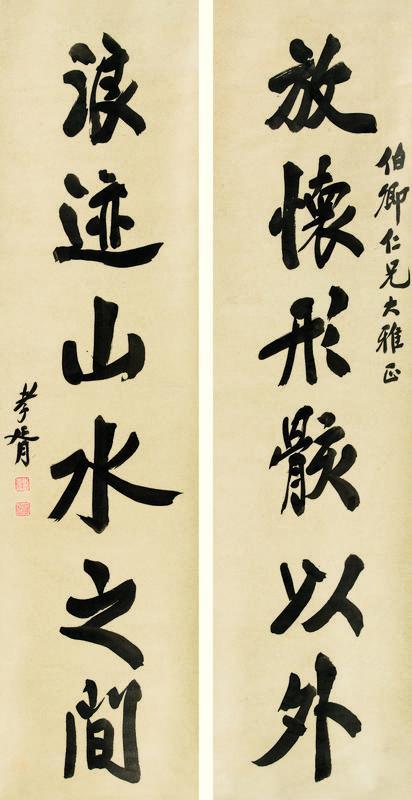 伯卿仁兄大雅正
放懷形骸以外
浪迹山水之間
孝胥